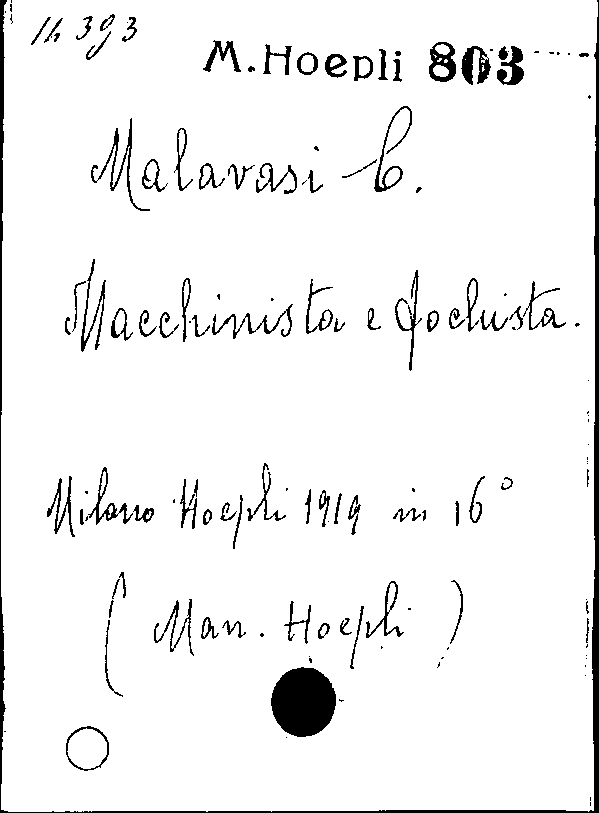 14393
M. Hoepli 803
Malavasi C.
Macchinista e fochista.
Milano Hoepli 1919 in 16°
( Man. Hoepli )